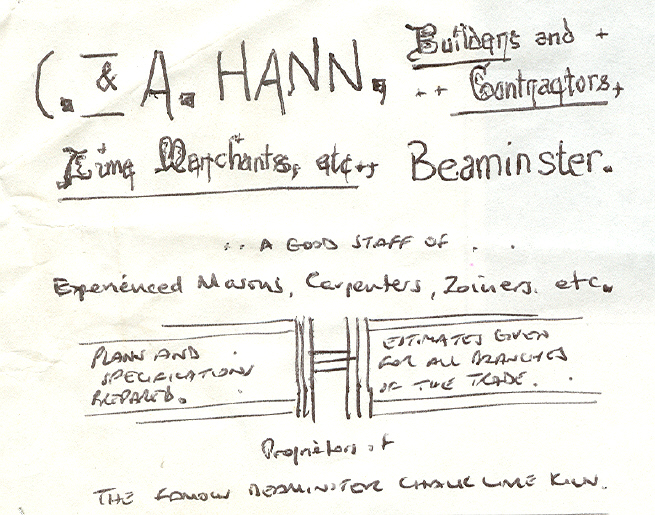 C. & A. HANN,
Builders and
Contractors,
Lime Merchants, etc., Beaminster.
A GOOD STAFF OF
Experienced Masons, Carpenters, Joiners. etc.
PLANS AND
SPECIFICATIONS
PREPARED.
ESTIMATES GIVEN
FOR ALL BRANCHES
OF THE TRADE.
Proprietors of
THE FAMOUS BEAMINSTER CHALK LIME KILN.